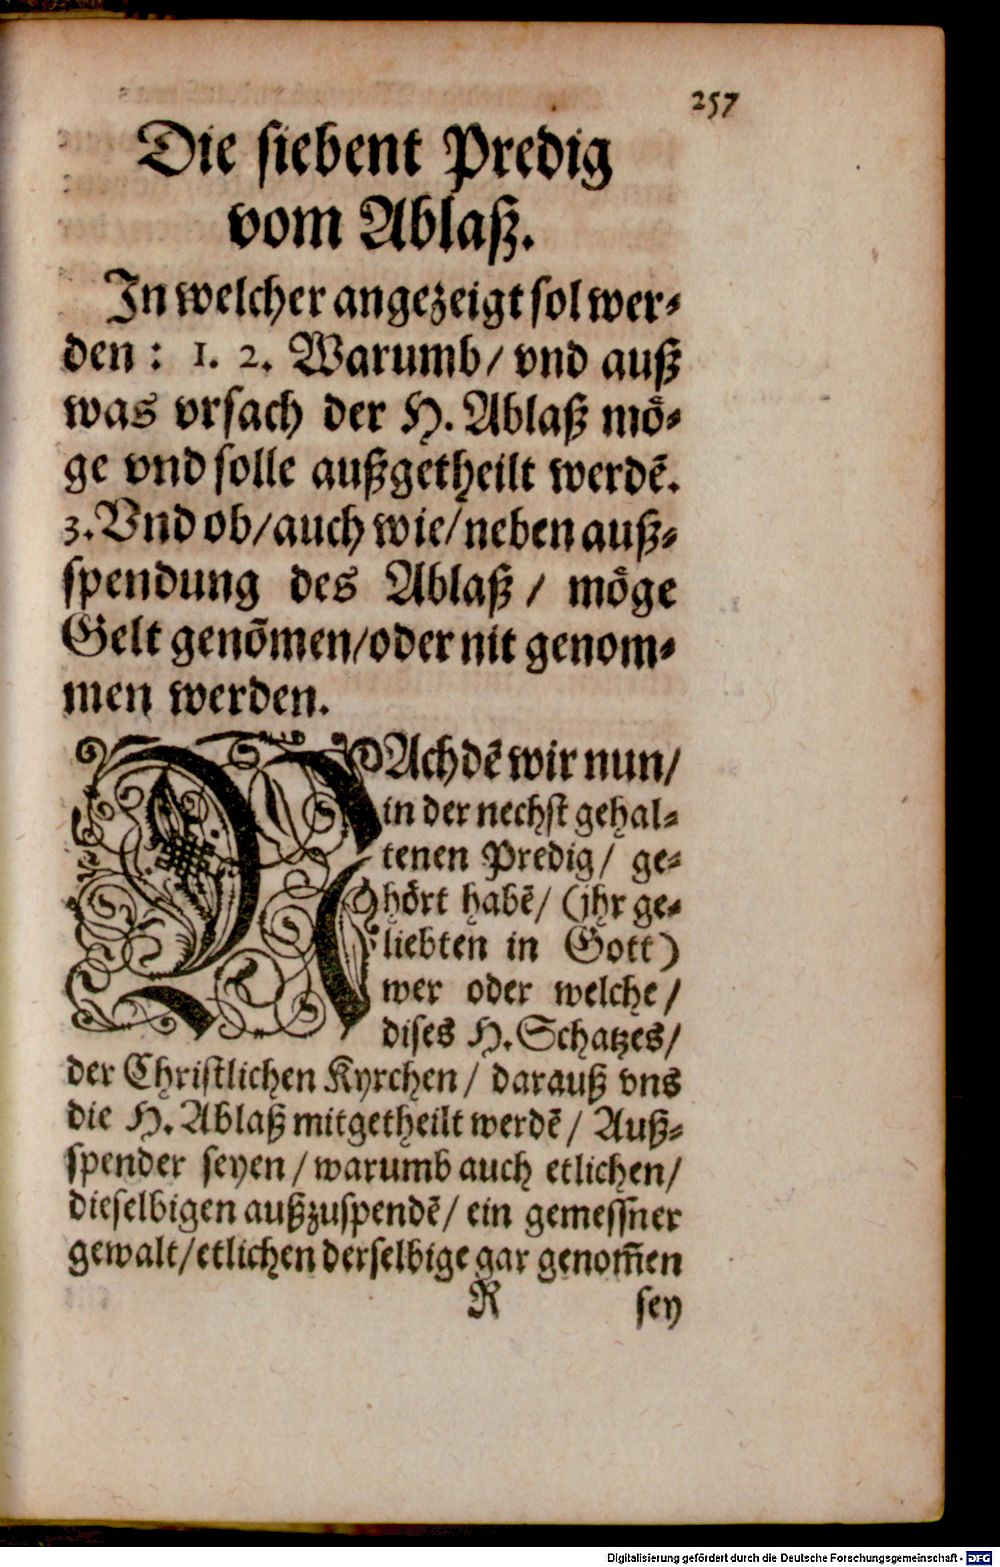 257
Die siebent Predig
vom Ablaß.
In welcher angezeigt sol wer⸗
den: 1. 2. Warumb/ vnd auß
was vrsach der H. Ablaß moͤ⸗
ge vnd solle außgetheilt werdẽ.
3. Vnd ob/ auch wie/ neben auß⸗
spendung des Ablaß/ moͤge
Gelt genõmen/ oder nit genom⸗
men werden.
NAch dẽ wir nun/
in der nechst gehal⸗
tenen Predig/ ge⸗
hoͤrt habẽ/ (jhr ge⸗
liebten in Gott)
wer oder welche/
dises H. Schatzes/
der Christlichen Kyrchen/ darauß vns
die H. Ablaß mitgetheilt werdẽ/ Auß⸗
spender seyen/ warumb auch etlichen/
dieselbigen außzuspendẽ/ ein gemessner
gewalt/ etlichen derselbige gar genom̃en
R sey
Digitalisierung gefördert durch die Deutsche Forschungsgemeinschaft - DFG